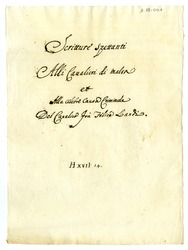 Scritture spettanti
Alli Cavalieri di malta
et
Alla celebre causa Criminale
Del Cavalier Frà
H XVII 14.